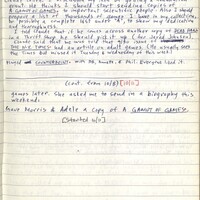 great. He thinks I should start sending copies of
A GAMUT OF GAMES to important scientific people. Also I should
prepare a list of thousands of games I have in my collection,
or possibly a complete list under "A", to show my dedication
and thoroughness.
I told Claude that if he came across another copy of DEAD PAN
in a thrift shop he should pick it up (for David
Claude said that we won that
THE N.Y. TIMES had an article on adult games. (He usually sees
the Times but missed it Tuesday & Wednesday of this week)
Played COUNTERPOINT with PB, & Phil. Everyone liked it.
(cont. from 10/8) [10/11]
games later. She asked me to send in a biography this
weekend.
Gave Morris & Adele a copy of A GAMUT OF GAMES.
[Started 10/11]